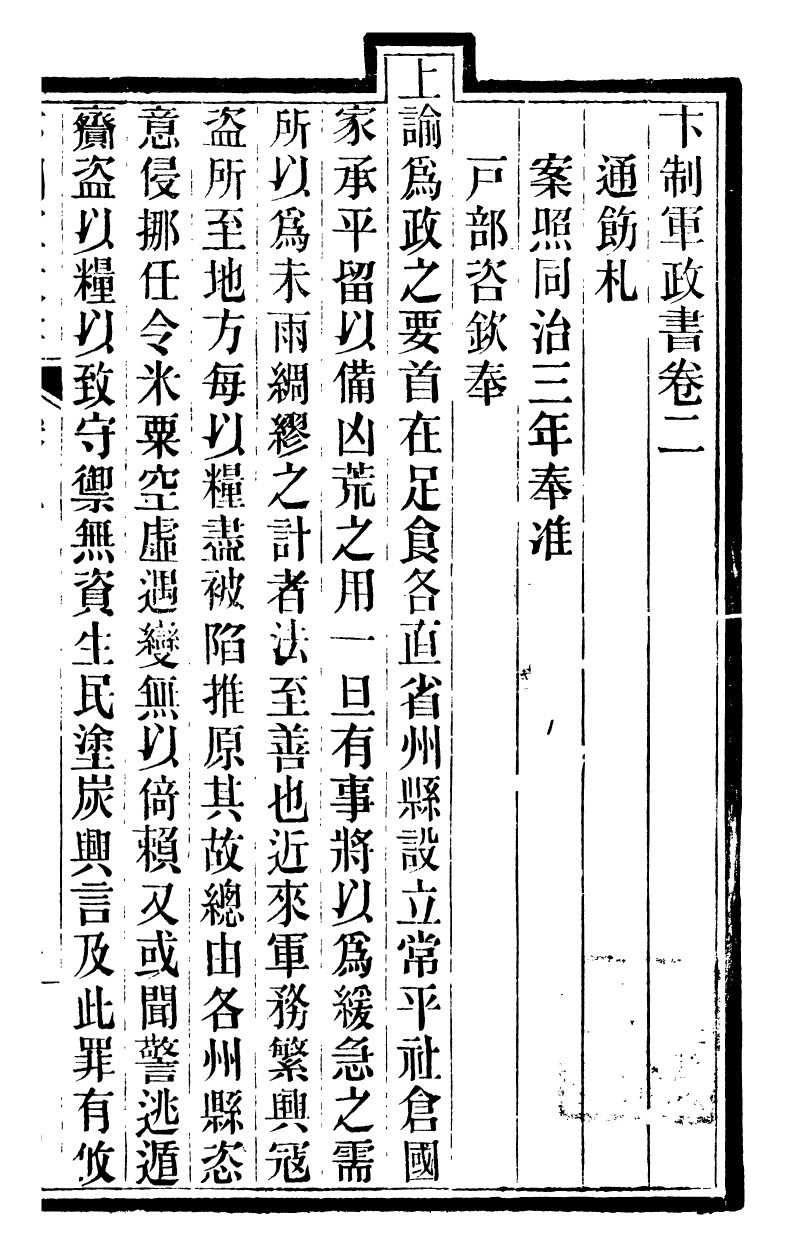 卞制軍政書卷二
通飭札
案照同治三年奉准
戶部咨欽奉
上諭爲政之要首在足食各直省州縣設立常平社倉國
家承平留以備凶荒之用一旦有事將以爲緩急之需
所以爲未雨綢繆之計者法至善也近來軍務繁興寇
盜所至地方每以糧盡被陷推原其故總由各州縣恣
意侵挪任令米粟空虛遇變無以倚賴又或聞警逃遁
齎盜以糧以致守禦無資生民塗炭興言及此罪有攸